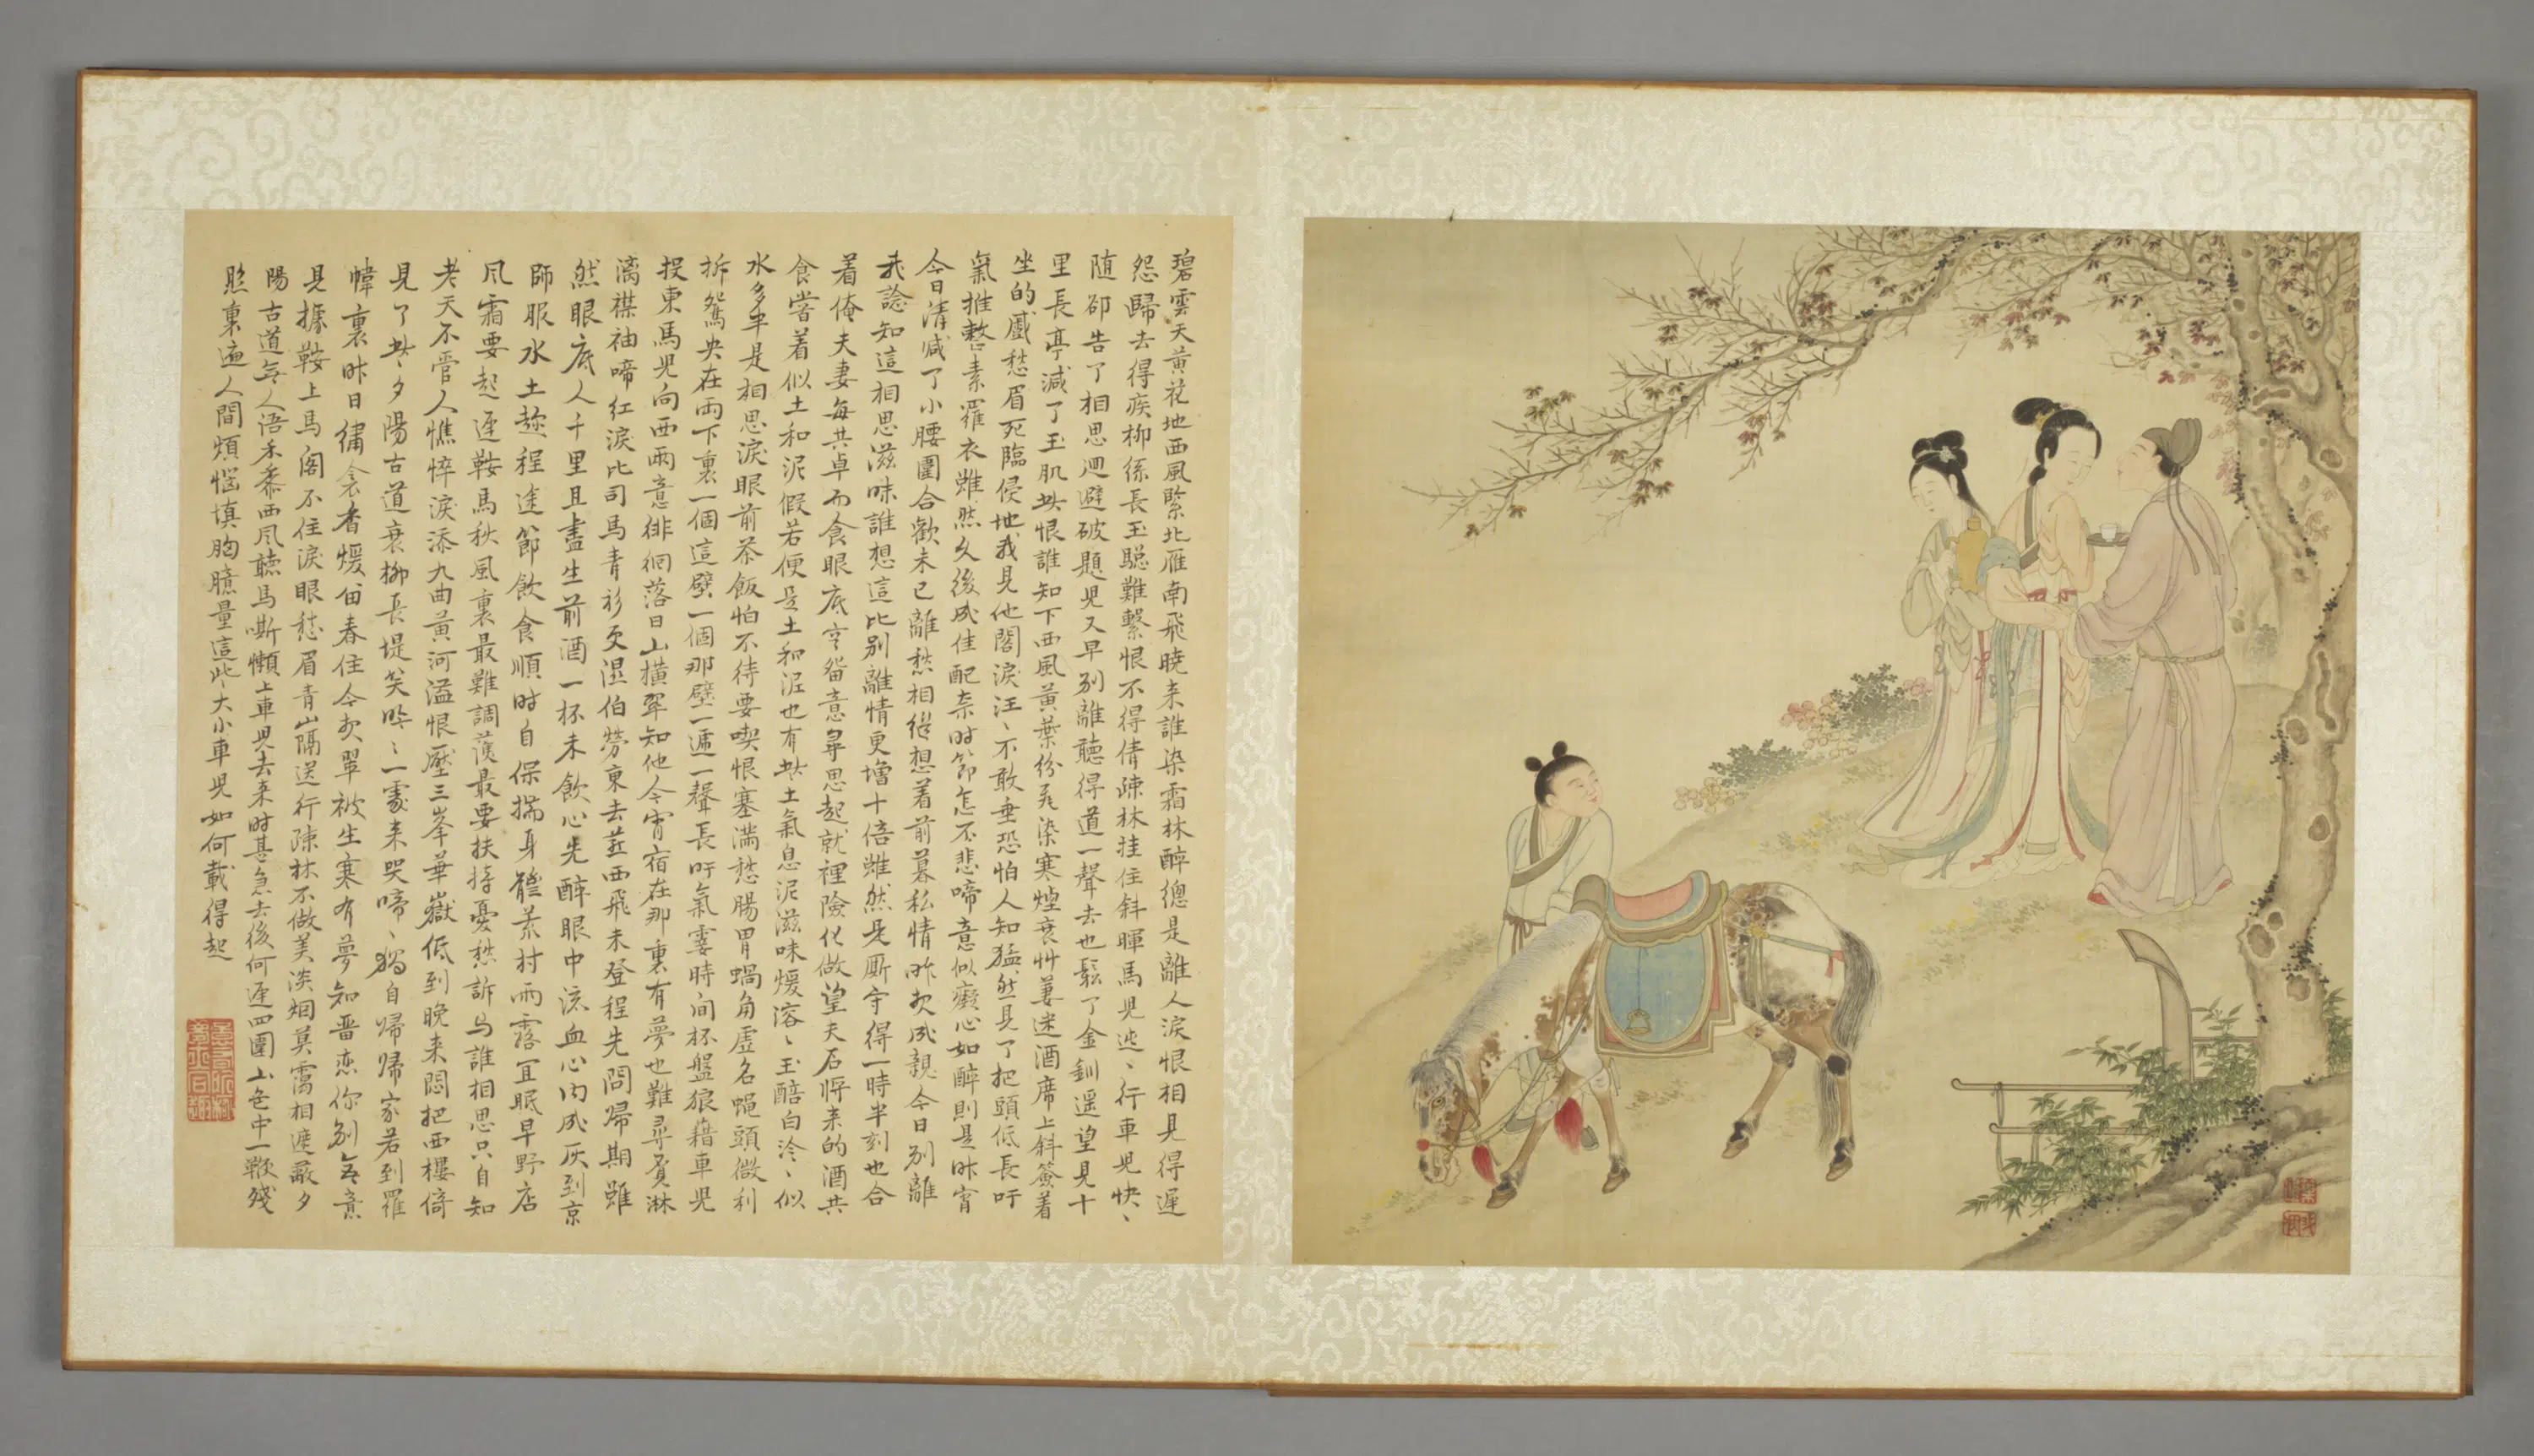 碧雲天黃花地西風緊北雁南飛曉來誰染霜林醉總是離人淚恨相見得遲
怨歸去得疾柳絲長玉驄難繫恨不得倩疎林挂住斜暉馬兒迍、行車兒快、
随卻告了相思迴避破題兒又早別離聽得道一聲去也鬆了金釧遥望見十
里長亭減了玉肌此恨誰知下西風黃葉紛飛染寒煙衰艸萋迷酒席上斜簽着
坐的蹙愁眉死臨侵地我見他閣淚汪、不敢垂恐怕人知猛然見了把頭低長吁
氣推整素羅衣雖然久後成佳配柰时節怎不悲啼意似癡心如醉則是昨宵
今日清减了小腰圍合歡未已離愁相継想着前暮私情昨夜成親今日別離
我諗知這相思滋味誰想這比别離情更增十倍雖然是厮守得一時半刻也合
着俺夫妻每共卓而食眼底空留意尋思起就裡險化做望夫石將来的酒共
食嘗着似土和泥假若便是土和泥也有些土氣息泥滋味煖溶、玉醅白泠、似
水多半是相思淚眼前茶飯怕不待要喫恨塞滿愁腸胃蝸角虛名蠅頭微利
拆鴛央在兩下裏一個這壁一個那壁一遞一聲長吁氣霎時间杯盤狼藉車兒
投東馬兒向西兩意徘徊落日山橫翠知他今宵宿在那裏有夢也難尋覓淋
漓襟袖啼紅淚比司馬青衫更濕伯勞東去燕西飛未登程先問歸期雖
然眼底人千里且盡生前酒一杯未飲心先醉眼中流血心內成灰到京
師服水土趂程途節飲食順时自保揣身體荒村雨露宜眠早野店
風霜要起遲鞍馬秋風裏最難調護最要扶持憂愁訴与誰相思只自知
老天不管人憔悴淚添九曲黃河溢恨壓三峯華嶽低到晚来悶把西樓倚
見了些夕陽古道衰柳長堤笑吟、一處来哭啼、獨自歸歸家若到羅
幃裏昨日繡衾香煖留春住今夜翠被生寒有夢知畱恋你別無意
見據鞍上馬閣不住淚眼愁眉青山隔送行疎林不做美淡烟莫靄相遮蔽夕
陽古道無人語禾黍西風聽馬嘶懶上車兒去来时甚急去後何遲四圍山色中一鞭殘
照裏遍人間煩惱填胸臆量這些大小車兒如何載得起